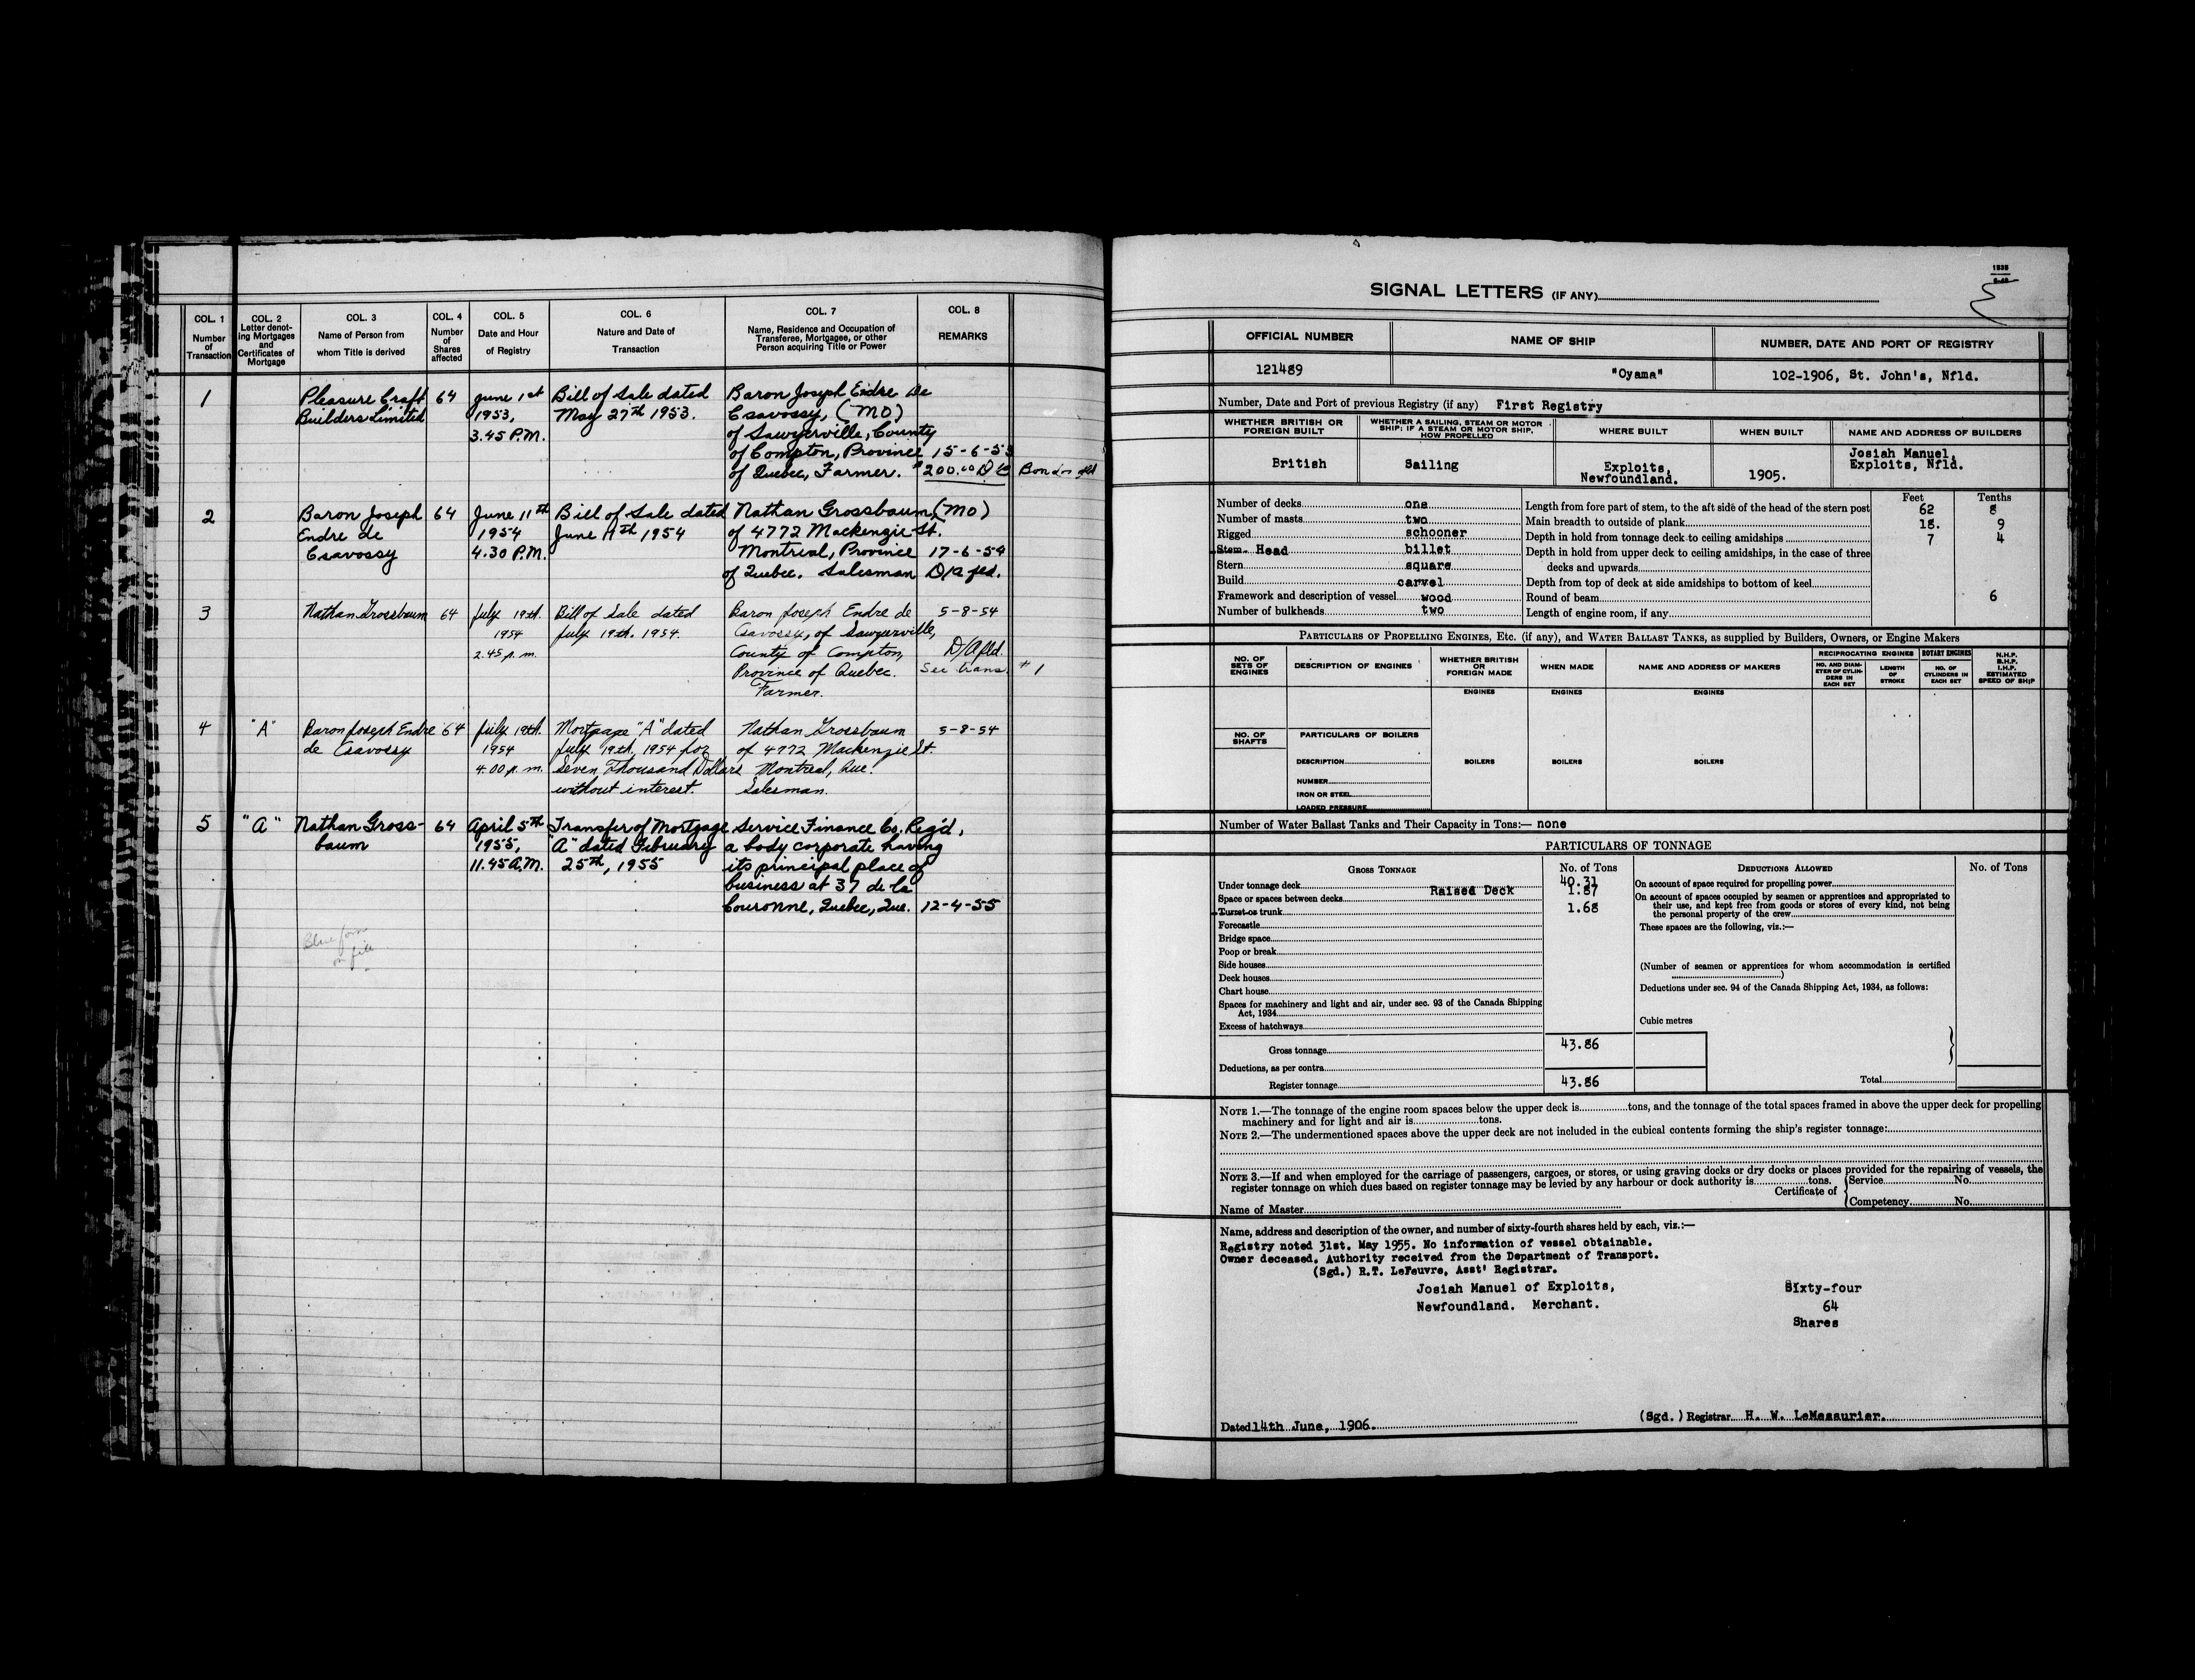 COL. 1
Number
of
Transaction
COL. 2
Letter denot-
ing Mortgages
and
Certificates of
Mortgage
COL. 3
Name of Person from
whom Title is derived
COL. 4
Number
of
Shares
affected
COL. 5
Date and Hour
of Registry
COL. 6
Nature and Date of
Transaction
COL. 7
Name, Residence and Occupation of
Transferee, Mortgagee, or other
Person acquiring Title or Power
COL. 8
REMARKS
1
Pleasure Craft
Builders Limited
64
June 1st
1953,
3.45 P.M.
Bill of Sale dated
May 27th 1953.
Baron Joseph Endre de
Csavossy, (MO)
of Sawyerville, County
of Compton, Province
of Quebec, Farmer.
15-6-53
$200.00
2
Baron Joseph
Endre de
Csavossy
64
June 11th
1954
4.30 P.M.
Bill of Sale dated
June 11th 1954
Nathan Grossbaum, (MO)
of 4772 Mackenzie St.
Montreal, Province
of Quebec. Salesman
17-6-54
D/A fld.
3
Nathan Grossbaum
64
July 19th.
1954
2.45 p.m.
Bill of Sale dated
July 19th. 1954.
Baron Joseph Endre de
Csavossy, of Sawyerville,
County of Compton,
Province of Quebec.
Farmer.
5-8-54
D/A fld.
See trans. #1
4
"A"
Baron Joseph Endre
de Csavossy
64
July 19th.
1954
4.00 p.m.
Mortgage "A" dated
July 19th, 1954 for
Seven Thousand Dollars
without interest.
Nathan Grossbaum
of 4772 Mackenzie St.
Montreal, Que.
Salesman.
5-8-54
5
"A"
Nathan Gross-
baum
64
April 5th
1955,
11.45 A.M.
Transfer of Mortgage
"A" dated February
25th, 1955
Service Finance Co. Reg'd,
a body corporate having
its principal place of
business at 37 de la
Couronne, Quebec, Que.
12-4-55
Blue form
on file
SIGNAL LETTERS (IF ANY)
OFFICIAL NUMBER
NAME OF SHIP
NUMBER, DATE AND PORT OF REGISTRY
121489
"Oyama"
102-1906, St. John's, Nfld.
Number, Date and Port of previous Registry (if any) First Registry
WHETHER BRITISH OR
FOREIGN BUILT
WHETHER A SAILING, STEAM OR MOTOR
SHIP; IF A STEAM OR MOTOR SHIP,
HOW PROPELLED
WHERE BUILT
WHEN BUILT
NAME AND ADDRESS OF BUILDERS
British
Sailing
Exploits,
Newfoundland.
1905.
Josiah Manuel,
Exploits, Nfld.
Number of decks one
Number of masts two
Rigged schooner
Stem Head billet
Stern square
Build carvel
Framework and description of vessel wood
Number of bulkheads two
Feet
Tenths
Length from fore part of stem, to the aft side of the head of the stern post 62 8
Main breadth to outside of plank 18. 9
Depth in hold from tonnage deck to ceiling amidships 7 4
Depth in hold from upper deck to ceiling amidships, in the case of three
decks and upwards
Depth from top of deck at side amidships to bottom of keel
Round of beam 6
Length of engine room, if any
PARTICULARS OF PROPELLING ENGINES, ETC. (if any), and WATER BALLAST TANKS, as supplied by Builders, Owners, or Engine Makers
NO. OF
SETS OF
ENGINES
DESCRIPTION OF ENGINES
WHETHER BRITISH
OR
FOREIGN MADE
WHEN MADE
NAME AND ADDRESS OF MAKERS
RECIPROCATING ENGINES
NO. AND DIAM-
ETER OF CYLIN-
DERS IN
EACH SET
LENGTH
OF
STROKE
ROTARY ENGINES
NO. OF
CYLINDERS IN
EACH SET
N.H.P.
B.H.P.
I.H.P.
ESTIMATED
SPEED OF SHIP
ENGINES
ENGINES
ENGINES
NO. OF
SHAFTS
PARTICULARS OF BOILERS
DESCRIPTION
NUMBER
IRON OR STEEL
LOADED PRESSURE
BOILERS
BOILERS
BOILERS
Number of Water Ballast Tanks and Their Capacity in Tons:— none
PARTICULARS OF TONNAGE
GROSS TONNAGE
No. of Tons
Under tonnage deck 40.31
Space or spaces between decks Raised Deck 1.87
Turret or trunk 1.68
Forecastle
Bridge space
Poop or break
Side houses
Deck houses
Chart house
Spaces for machinery and light and air, under sec. 93 of the Canada Shipping
Act, 1934
Excess of hatchways
Gross tonnage 43.86
Deductions, as per contra
Register tonnage 43.86
DEDUCTIONS ALLOWED
No. of Tons
On account of space required for propelling power
On account of spaces occupied by seamen or apprentices and appropriated to
their use, and kept free from goods or stores of every kind, not being
the personal property of the crew
These spaces are the following, viz.:—
(Number of seamen or apprentices for whom accommodation is certified
)
Deductions under sec. 94 of the Canada Shipping Act, 1934, as follows:
Cubic metres
Total
NOTE 1.—The tonnage of the engine room spaces below the upper deck is tons, and the tonnage of the total spaces framed in above the upper deck for propelling
machinery and for light and air is tons.
NOTE 2.—The undermentioned spaces above the upper deck are not included in the cubical contents forming the ship's register tonnage:
NOTE 3.—If and when employed for the carriage of passengers, cargoes, or stores, or using graving docks or dry docks or places provided for the repairing of vessels, the
register tonnage on which dues based on register tonnage may be levied by any harbour or dock authority is tons.
Certificate of
Service No.
Competency No.
Name of Master
Name, address and description of the owner, and number of sixty-fourth shares held by each, viz.:—
Registry noted 31st. May 1955. No information of vessel obtainable.
Owner deceased. Authority received from the Department of Transport.
(Sgd.) R.T. LeFeuvre, Asst' Registrar.
Josiah Manuel of Exploits,
Newfoundland. Merchant.
Sixty-four
64
Shares
Dated 14th June, 1906.
(Sgd.) Registrar H. W. LeMessurier.